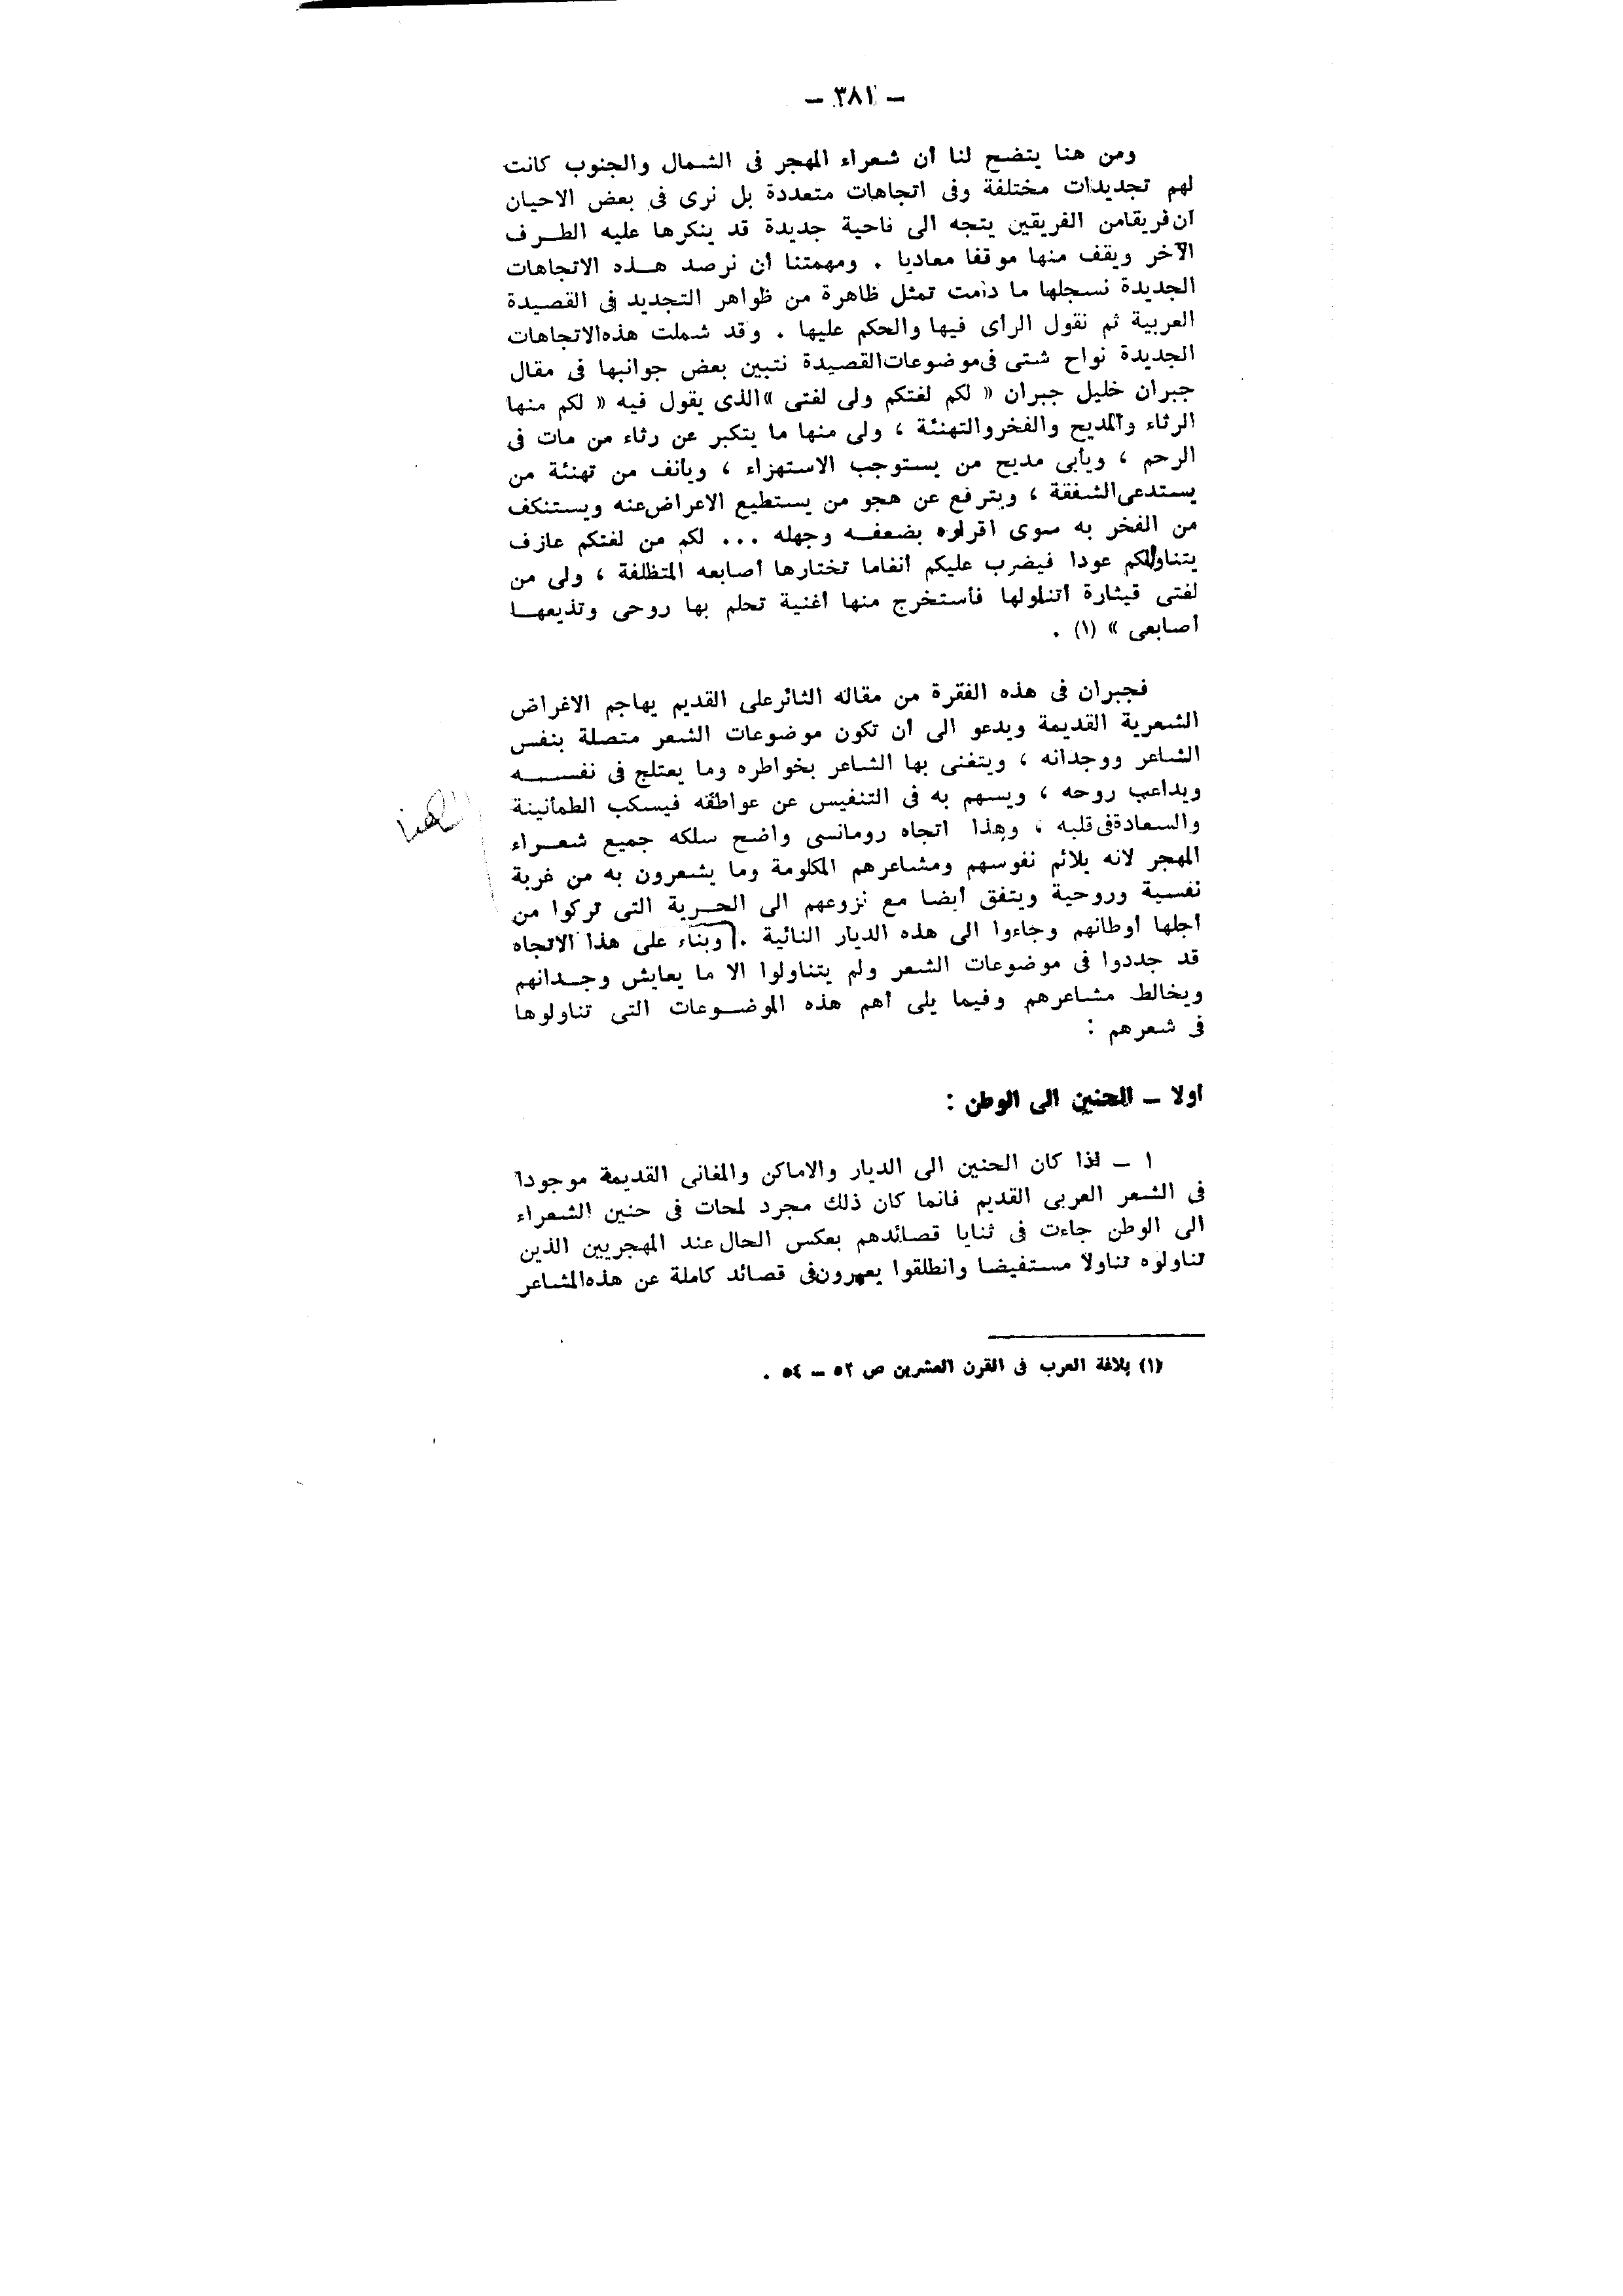 — ٣٨١ —
ومن هنا يتضح لنا أن شعراء المهجر فى الشمال والجنوب كانت
لهم تجديدات مختلفة وفى اتجاهات متعددة بل نرى فى بعض الاحيان
ان فريقا من الفريقين يتجه الى ناحية جديدة قد ينكرها عليه الطرف
الآخر ويقف منها موقفا معاديا . ومهمتنا أن نرصد هذه الاتجاهات
الجديدة نسجلها ما دامت تمثل ظاهرة من ظواهر التجديد فى القصيدة
العربية ثم نقول الرأى فيها والحكم عليها . وقد شملت هذه الاتجاهات
الجديدة نواح شتى فى موضوعات القصيدة نتبين بعض جوانبها فى مقال
جبران خليل جبران « لكم لغتكم ولى لغتى » الذى يقول فيه « لكم منها
الرثاء والمديح والفخر والتهنئة ، ولى منها ما يتكبر عن رثاء من مات فى
الرحم ، ويأبى مديح من يستوجب الاستهزاء ، ويأنف من تهنئة من
يستدعى الشفقة ، ويترفع عن هجو من يستطيع الاعراض عنه ويستنكف
من الفخر به سوى اقراره بضعفه وجهله ... لكم من لغتكم عازف
يتناولكم عودا فيضرب عليكم أنغاما تختارها أصابعه المتظلفة ، ولى من
لغتى قيثارة أتناولها فأستخرج منها أغنية تحلم بها روحى وتذيعها
أصابعى » (١) .
فجبران فى هذه الفقرة من مقاله الثائر على القديم يهاجم الاغراض
الشعرية القديمة ويدعو الى أن تكون موضوعات الشعر متصلة بنفس
الشاعر ووجدانه ، ويتغنى بها الشاعر بخواطره وما يعتلج فى نفسه
ويداعب روحه ، ويسهم به فى التنفيس عن عواطفه فيسكب الطمأنينة
والسعادة فى قلبه ، وهذا اتجاه رومانسى واضح سلكه جميع شعراء
المهجر لانه يلائم نفوسهم ومشاعرهم المكلومة وما يشعرون به من غربة
نفسية وروحية ويتفق أيضا مع نزوعهم الى الحرية التى تركوا من
أجلها أوطانهم وجاءوا الى هذه الديار النائية . وبناء على هذا الاتجاه
قد جددوا فى موضوعات الشعر ولم يتناولوا الا ما يعايش وجدانهم
ويخالط مشاعرهم وفيما يلى أهم هذه الموضوعات التى تناولوها
فى شعرهم :
أولا — الحنين الى الوطن :
١ — لذا كان الحنين الى الديار والاماكن والمغانى القديمة موجودا
فى الشعر العربى القديم فانما كان ذلك مجرد لمحات فى حنين الشعراء
الى الوطن جاءت فى ثنايا قصائدهم بعكس الحال عند المهجريين الذين
تناولوه تناولا مستفيضا وانطلقوا يعبرون فى قصائد كاملة عن هذه المشاعر
(١) بلاغة العرب فى القرن العشرين ص ٥٢ — ٥٤ .